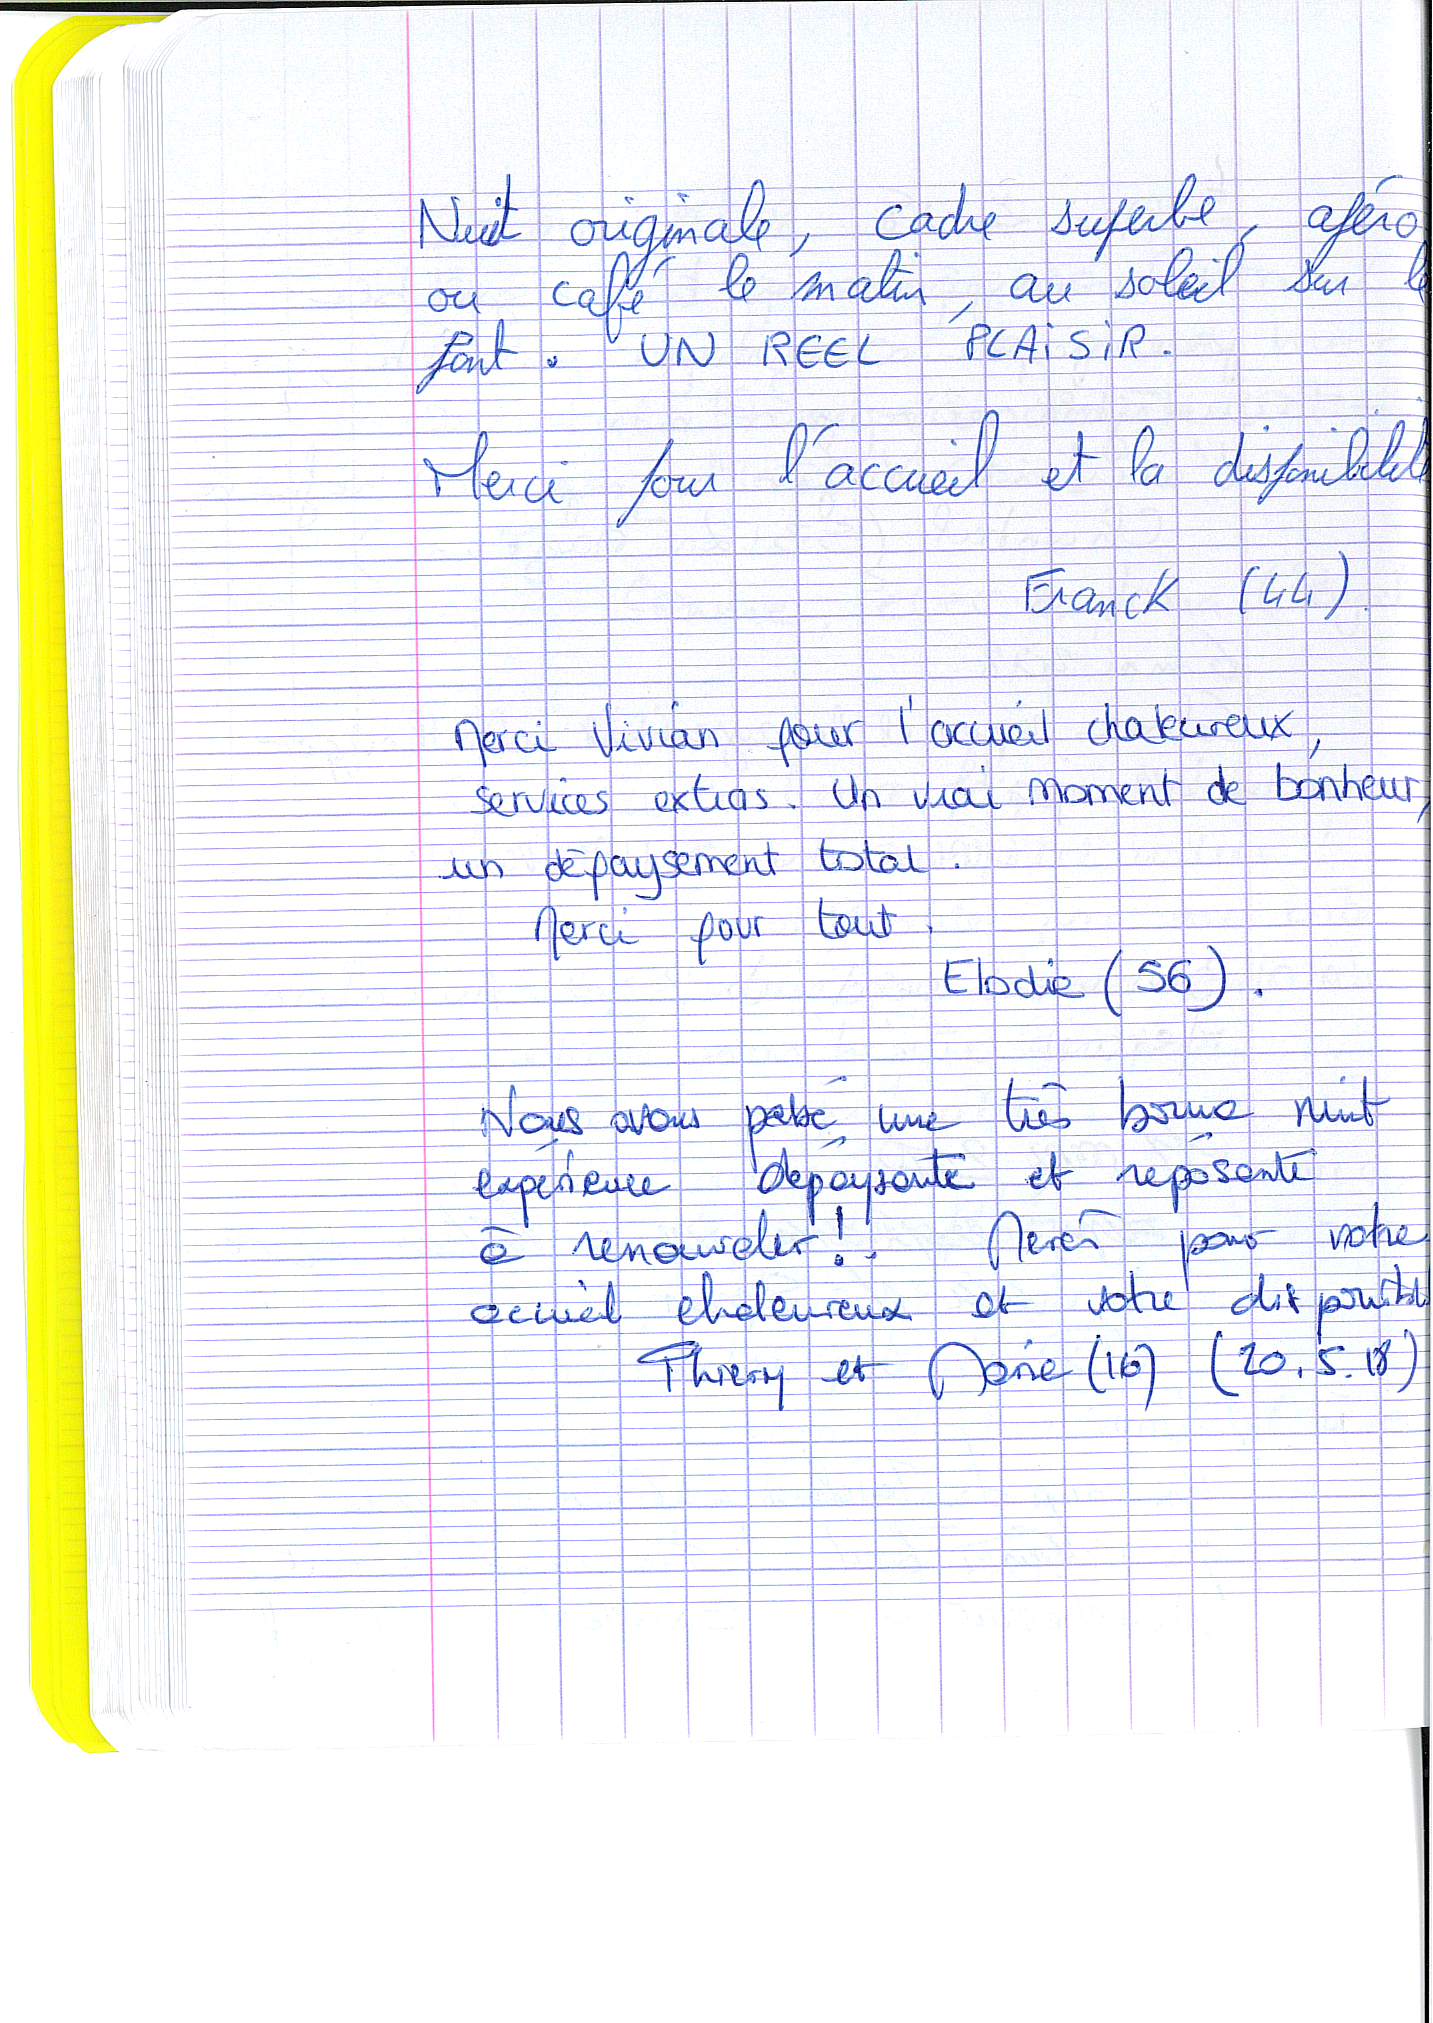 Nuit originale, cadre superbe, apéro
ou café le matin, au soleil sur le
pont. UN REEL PLAiSiR.
Merci pour l'accueil et la disponibilité
Franck (44).
Merci Vivian pour l'accueil chaleureux,
services extras. Un vrai moment de bonheur,
un dépaysement total.
Merci pour tout.
Elodie (56).
Nous avons passé une très bonne nuit
expérience dépaysante et reposante
à renouveler!. Merci pour votre
accueil chaleureux et votre
Thierry et Marie (16) (20.5.18)